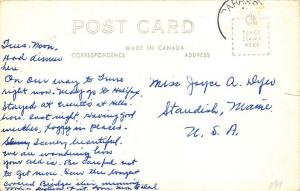 POST CARD
MADE IN CANADA
CORRESPONDENCE
ADDRESS
PLACE
STAMP
HERE
Tues. Noon.
Had dinner
here.
On our way to Truro
right now. May go to Halifax.
Stayed at
last night. Having good
weather, foggy in places.
Scenery beautiful.
We are wondering how
your cold is. Be careful not
to get more. Saw the longest
covered Bridge
Miss Joyce A. Dyer
Standish, Maine
U.S.A.